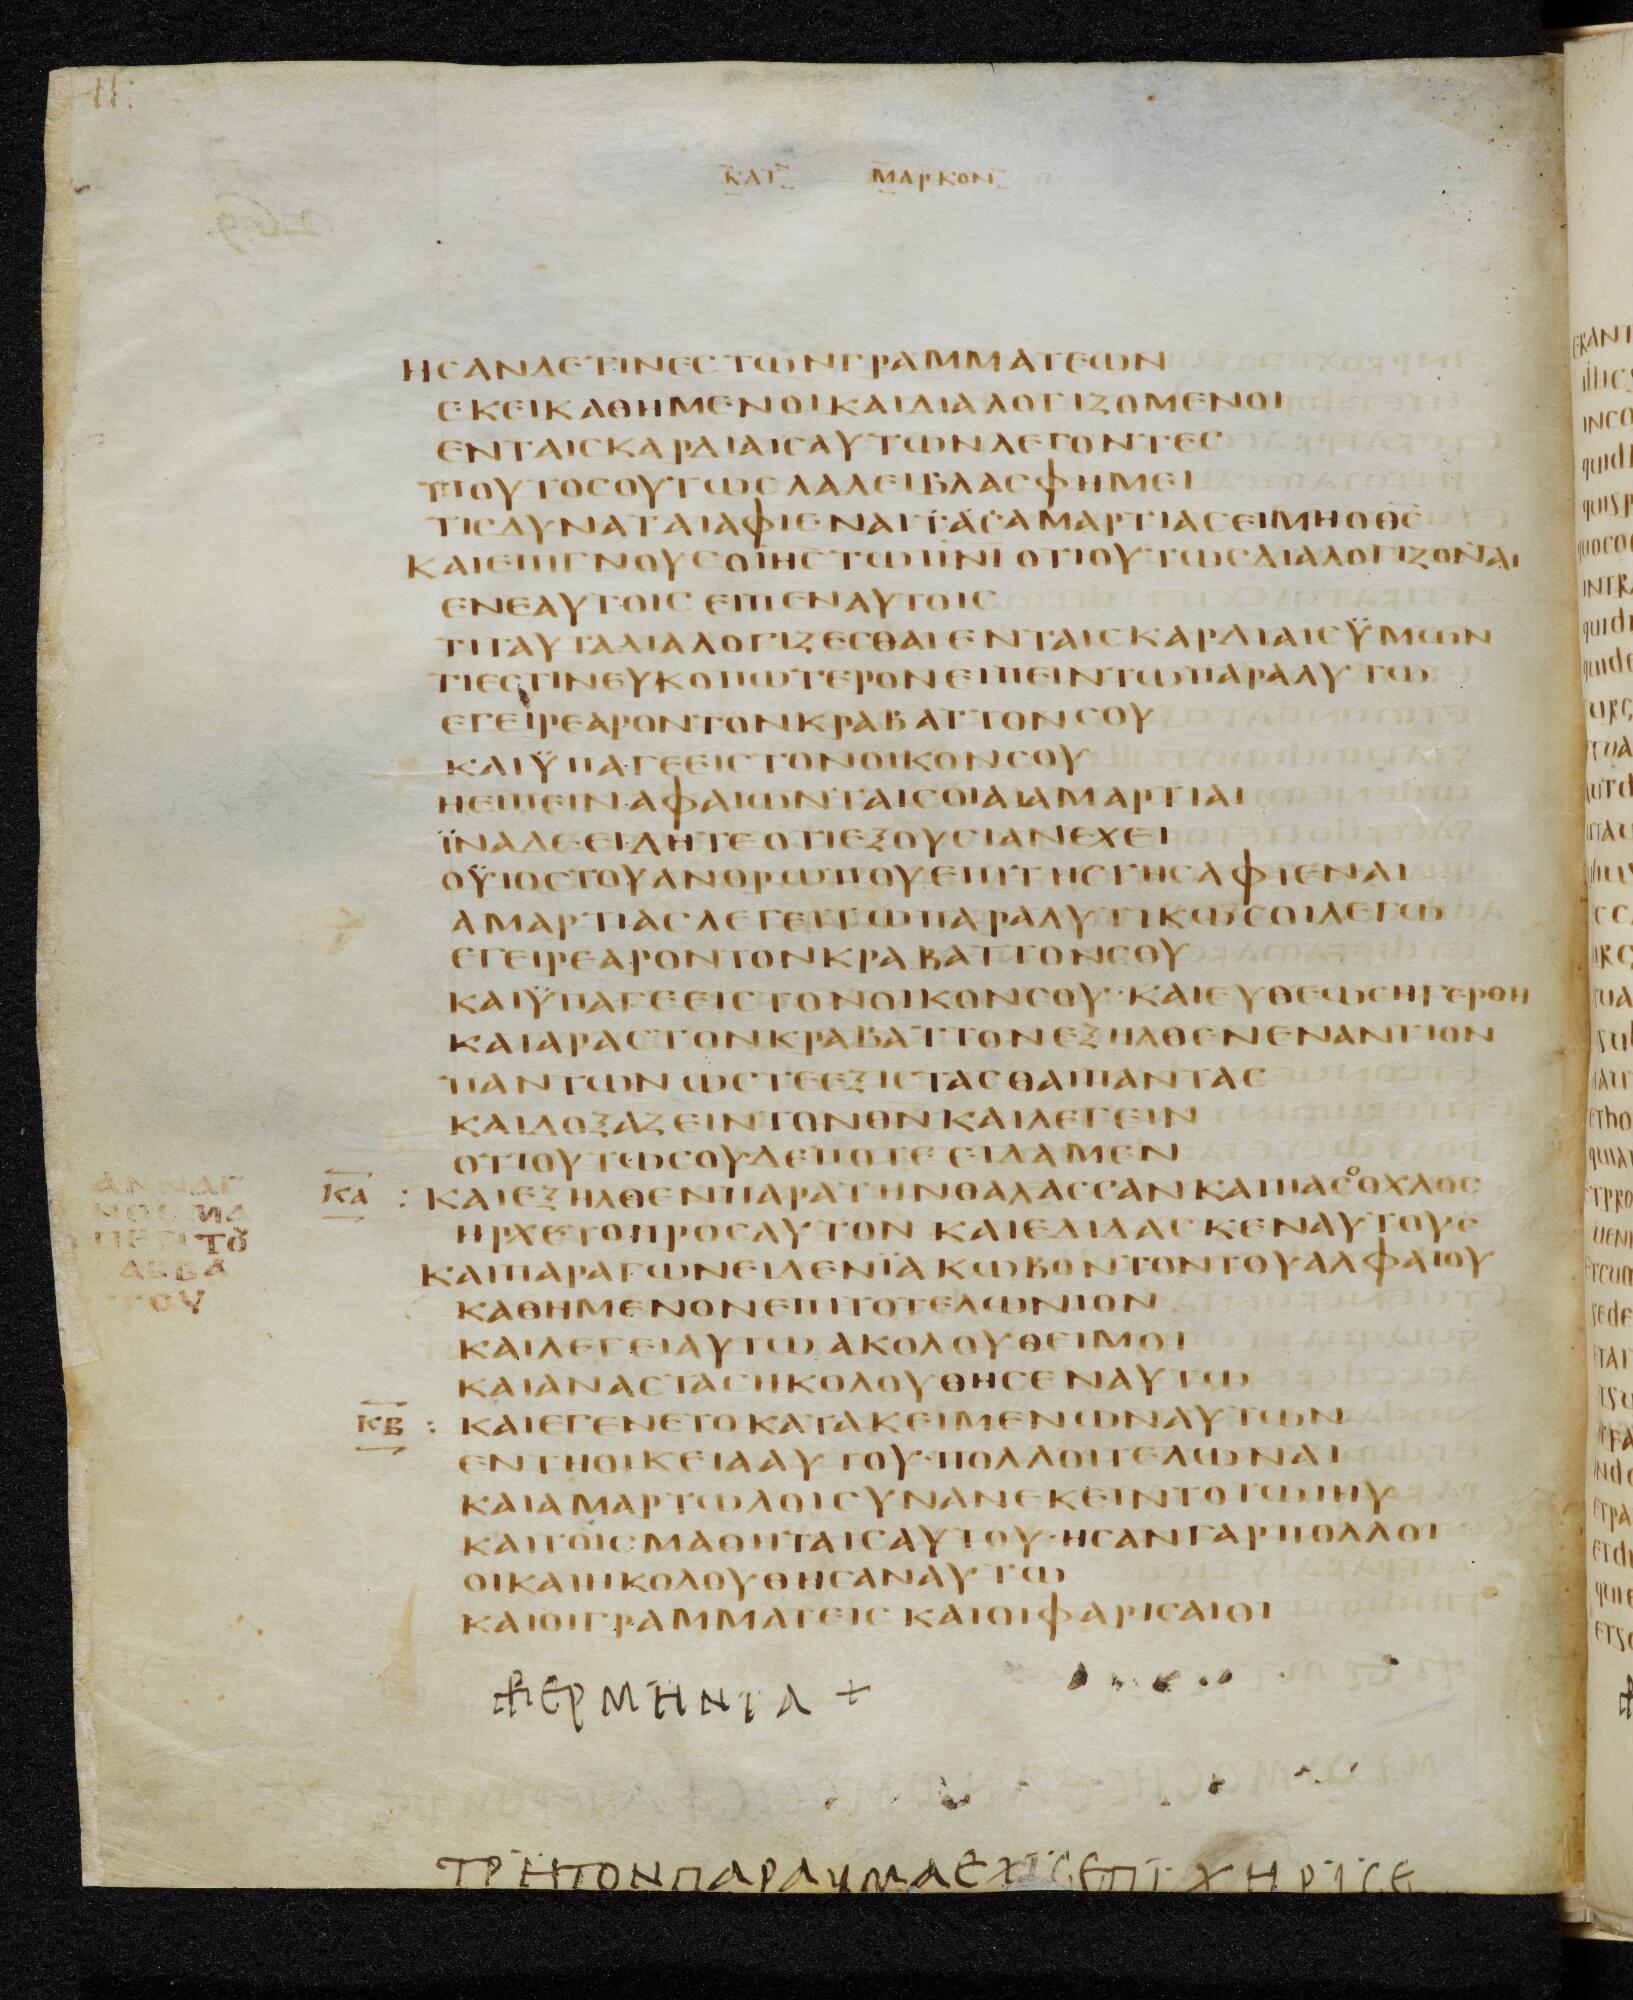 ΚΑΤ ΜΑΡΚΟΝ
ΗСΑΝΔΕΤΙΝΕСΤΩΝΓΡΑΜΜΑΤΕΩΝ
ΕΚΕΙΚΑΘΗΜΕΝΟΙΚΑΙΔΙΑΛΟΓΙΖΟΜΕΝΟΙ
ΕΝΤΑΙСΚΑΡΔΙΑΙСΑΥΤΩΝΛΕΓΟΝΤΕС
ΤΙΟΥΤΟСΟΥΤΩСΛΑΛΕΙΒΛΑСΦΗΜΕΙ
ΤΙСΔΥΝΑΤΑΙΑΦΙΕΝΑΙΤΑСΑΜΑΡΤΙΑСΕΙΜΗΟΘС
ΚΑΙΕΠΙΓΝΟΥСΟΙΗСΤΩΠΝΙ ΟΤΙΟΥΤΩСΔΙΑΛΟΓΙΖΟΝΑΙ
ΕΝΕΑΥΤΟΙС ΕΙΠΕΝΑΥΤΟΙС
ΤΙΤΑΥΤΑΔΙΑΛΟΓΙΖΕСΘΑΙΕΝΤΑΙСΚΑΡΔΙΑΙСΫΜΩΝ
ΤΙΕСΤΙΝΕΥΚΟΠΩΤΕΡΟΝΕΙΠΕΙΝΤΩΠΑΡΑΛΥΤΩ
ΕΓΕΙΡΕΑΡΟΝΤΟΝΚΡΑΒΑΤΤΟΝСΟΥ
ΚΑΙΫΠΑΓΕΕΙСΤΟΝΟΙΚΟΝСΟΥ
ΗΕΙΠΕΙΝΑΦΑΙΩΝΤΑΙСΟΙΑΙΑΜΑΡΤΙΑΙ
ΪΝΑΔΕΕΙΔΗΤΕΟΤΙΕΞΟΥСΙΑΝΕΧΕΙ
ΟΫΙΟСΤΟΥΑΝΘΡΩΠΟΥΕΠΙΤΗСΓΗСΑΦΙΕΝΑΙ
ΑΜΑΡΤΙΑСΛΕΓΕΙΤΩΠΑΡΑΛΥΤΙΚΩСΟΙΛΕΓΩ
ΕΓΕΙΡΕΑΡΟΝΤΟΝΚΡΑΒΑΤΤΟΝСΟΥ
ΚΑΙΫΠΑΓΕΕΙСΤΟΝΟΙΚΟΝСΟΥ·ΚΑΙΕΥΘΕΩСΗΓΕΡΘΗ
ΚΑΙΑΡΑСΤΟΝΚΡΑΒΑΤΤΟΝΕΞΗΛΘΕΝΕΝΑΝΤΙΟΝ
ΠΑΝΤΩΝ ΩСΤΕΕΞΙСΤΑСΘΑΙΠΑΝΤΑС
ΚΑΙΔΟΞΑΖΕΙΝΤΟΝΘΝ ΚΑΙΛΕΓΕΙΝ
ΟΤΙΟΥΤΩСΟΥΔΕΠΟΤΕ ΕΙΔΑΜΕΝ
ΚΑ : ΚΑΙΕΞΗΛΘΕΝΠΑΡΑΤΗΝΘΑΛΑССΑΝΚΑΙΠΑСΟΟΧΛΟС
ΗΡΧΕΤΟΠΡΟСΑΥΤΟΝ ΚΑΙΕΔΙΔΑСΚΕΝΑΥΤΟΥС
ΚΑΙΠΑΡΑΓΩΝΕΙΔΕΝΪΑΚΩΒΟΝΤΟΝΤΟΥΑΛΦΑΙΟΥ
ΚΑΘΗΜΕΝΟΝΕΠΙΤΟΤΕΛΩΝΙΟΝ
ΚΑΙΛΕΓΕΙΑΥΤΩ ΑΚΟΛΟΥΘΕΙΜΟΙ
ΚΑΙΑΝΑСΤΑСΗΚΟΛΟΥΘΗСΕΝΑΥΤΩ
ΚΒ : ΚΑΙΕΓΕΝΕΤΟΚΑΤΑΚΕΙΜΕΝΩΝΑΥΤΩΝ
ΕΝΤΗΟΙΚΕΙΑΑΥΤΟΥ·ΠΟΛΛΟΙΤΕΛΩΝΑΙ
ΚΑΙΑΜΑΡΤΩΛΟΙСΥΝΑΝΕΚΕΙΝΤΟΤΩΙΗΥ
ΚΑΙΤΟΙСΜΑΘΗΤΑΙСΑΥΤΟΥ·ΗСΑΝΓΑΡΠΟΛΛΟΙ
ΟΙΚΑΙΗΚΟΛΟΥΘΗСΑΝΑΥΤΩ
ΚΑΙΟΙΓΡΑΜΜΑΤΕΙС ΚΑΙΟΙΦΑΡΙСΑΙΟΙ
ΕΡΜΗΝΙΑ +